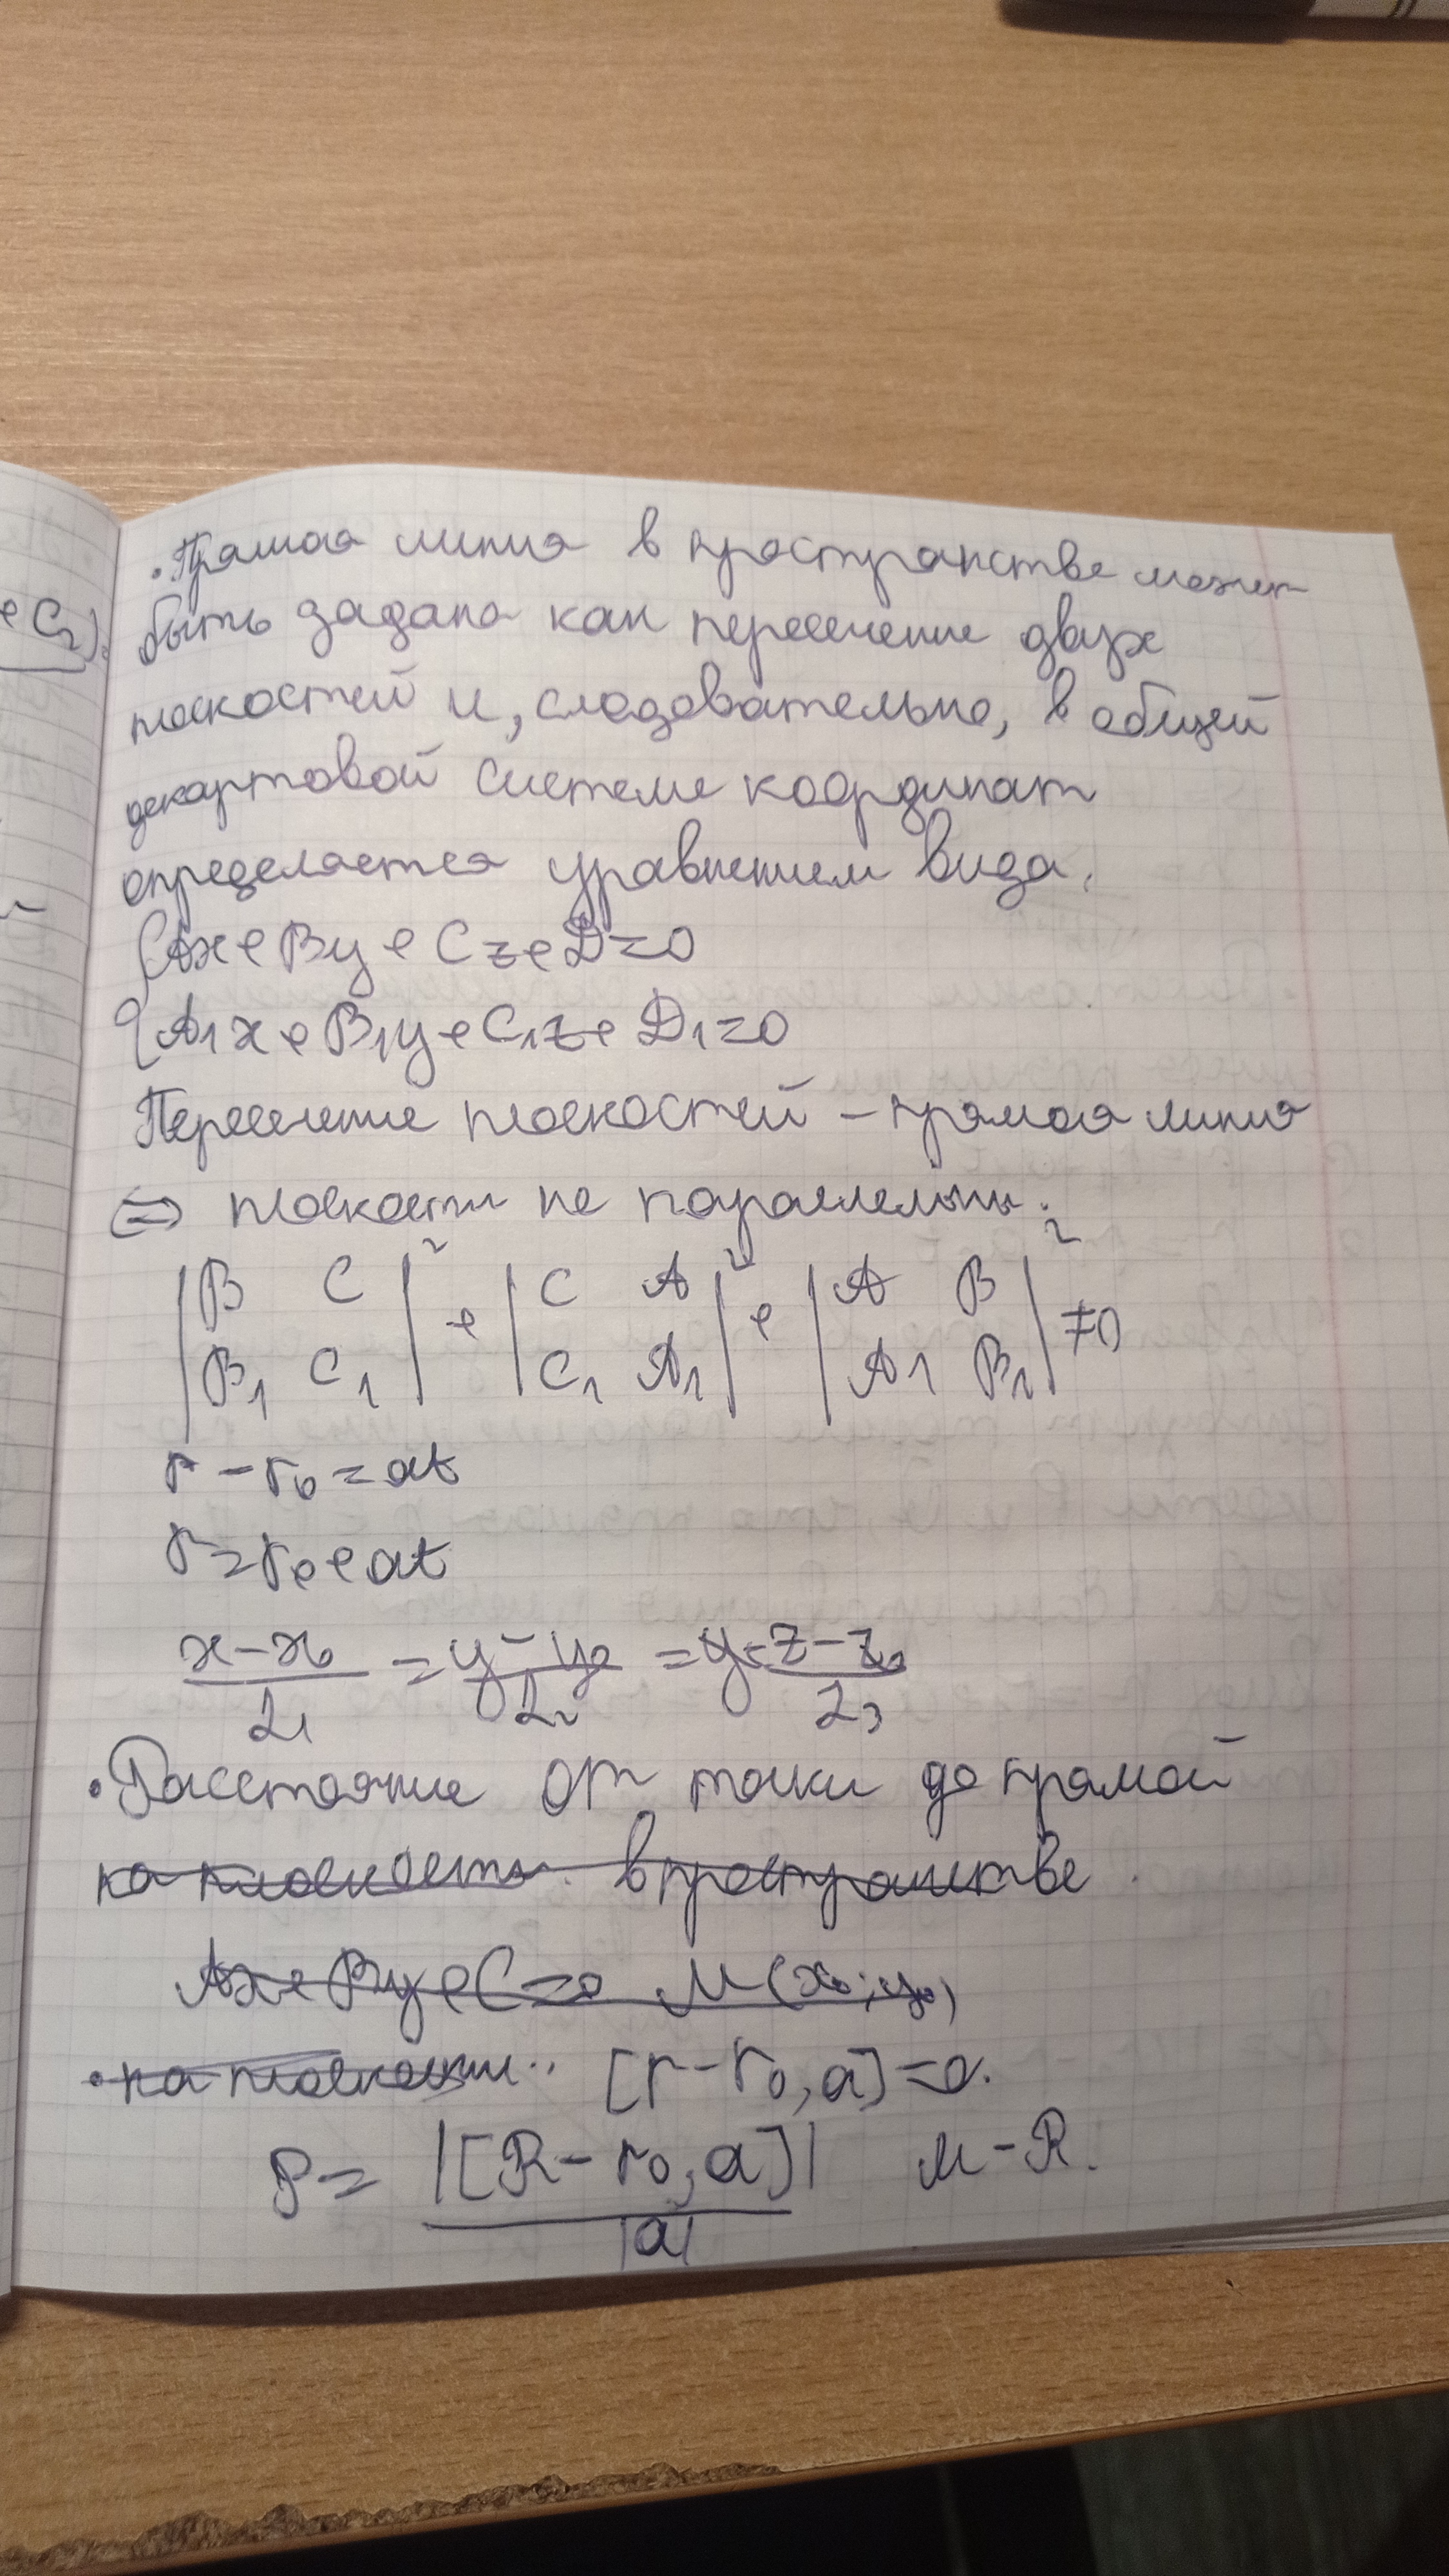 e C₂).
• Прямая линия в пространстве может
быть задана как пересечение двух
плоскостей и, следовательно, в общей
декартовой системе координат
определяется уравнением вида.
{Ax + By + Cz + D = 0
{A₁x + B₁y + C₁z + D₁ = 0
Пересечение плоскостей – прямая линия
⇔ плоскости не параллельны.
|B C|² + |C A|² + |A B|² ≠ 0
|B₁ C₁| |C₁ A₁| |A₁ B₁|
r – r₀ = at
r = r₀ + at
x – x₀ / α₁ = y – y₀ / α₂ = z – z₀ / α₃
• Расстояние от точки до прямой
на плоскости. в пространстве.
Ax + By + C = 0 M(x₀; y₀)
• на плоскости.. [r – r₀, a] = 0.
ρ = |[R – r₀, a]| / |a| M – R.